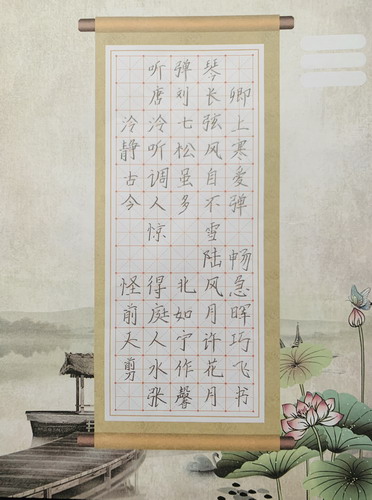 听弹琴
唐刘长卿
泠泠七弦上
静听松风寒
古调虽自爱
今人多不弹
惊雪
陆畅
怪得北风急
前庭如月晖
天人宁许巧
剪水作花飞
张馨月书